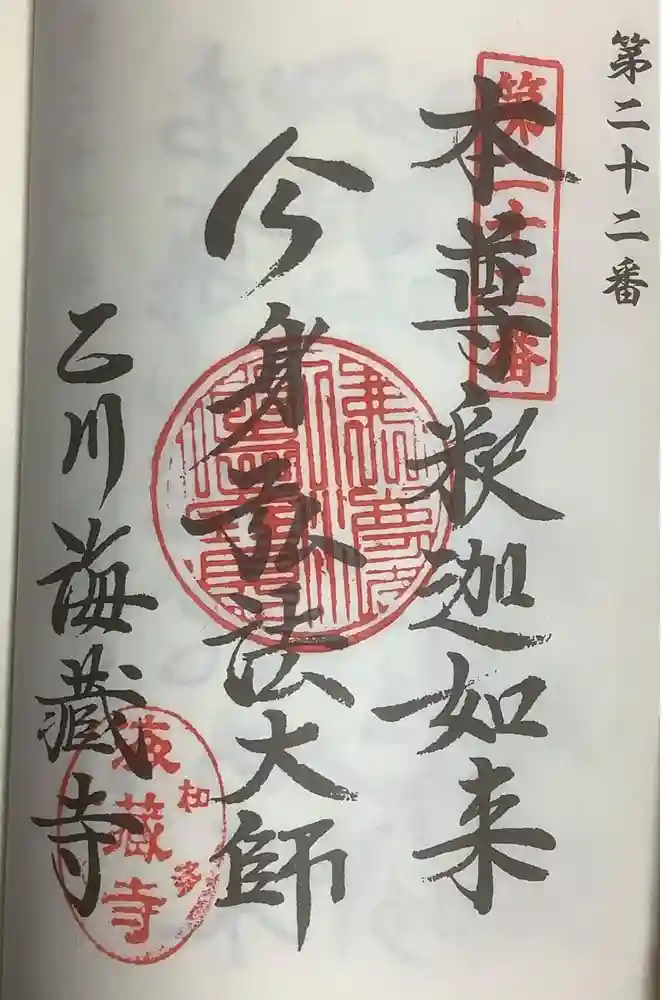 第二十二番
第二十二番
本尊釈迦如来
今身弘法大師
乙川海藏寺
知多
海藏寺